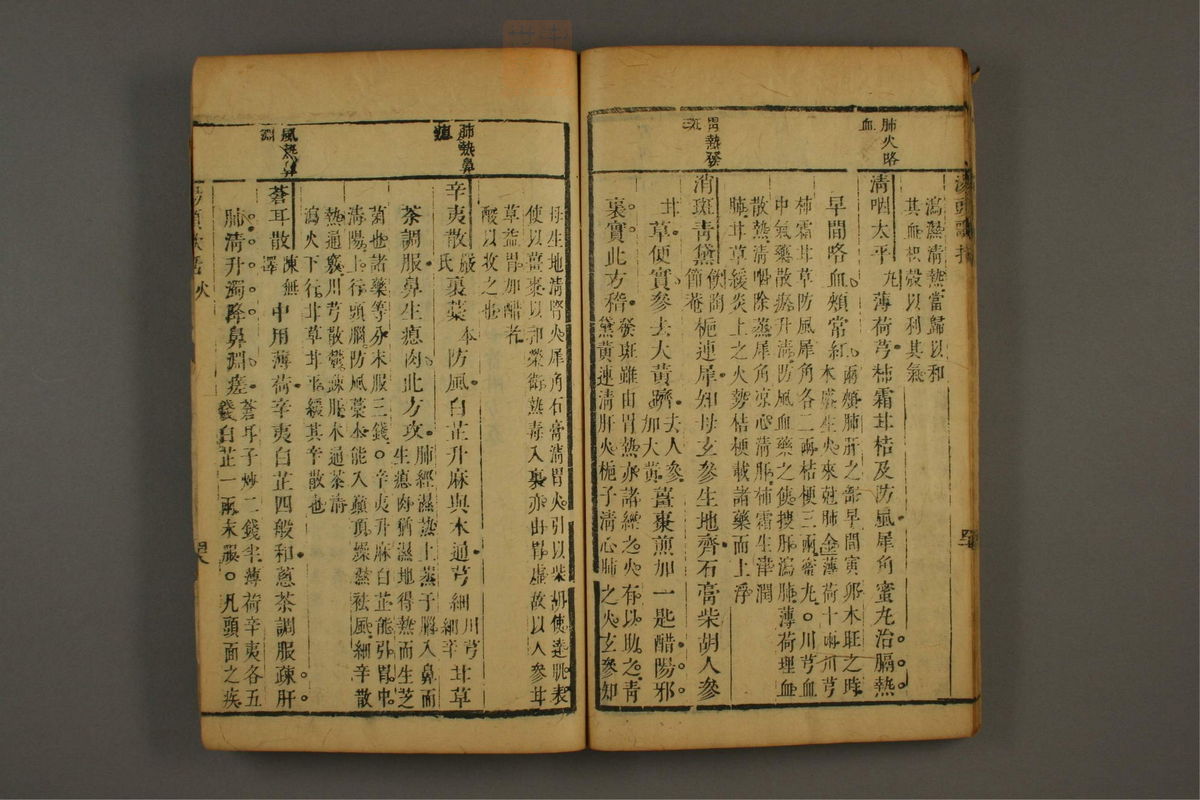 肺火咯
血
瀉蒸清熱當歸以和
其血枳殼以利其氣
清咽太平丸薄荷芎柿霜甘桔及防風犀角蜜丸治膈熱
早間咯血頰常紅兩頰肺肝之部早間寅卯木旺之時
木盛生火來尅肺金薄荷十兩川芎
柿霜甘草防風犀角各二兩桔梗三兩蜜丸川芎血
中氣藥散瘀升清防風血藥之使搜肝瀉肺薄荷理血
散熱清咽除蒸犀角涼心清肝柿霜生津潤
肺甘草緩炎上之火勢桔梗載諸藥而上浮
胃熱發
斑
消斑青黛陶節庵梔連犀知母玄參生地齊石膏柴胡人參
甘草便實參去大黃躋去人參加大黃薑棗煎加一匙醋陽邪
裏實此方稽發斑雖由胃熱亦諸經之火有以助之青
黛黃連清肝火梔子清心肺之火玄參知
母生地清腎火犀角石膏清胃火引以柴胡使達肌表
使以薑棗以和榮衛熱毒入裏亦由胃虛故以人參甘
草益胃加醋者
酸以收之也
肺熱鼻
瘜
辛夷散嚴氏裏藁本防風白芷升麻與木通芎細川芎細辛甘草
茶調服鼻生瘜肉此方攻肺經濕熱上蒸于腦入鼻而
生瘜肉猶濕地得熱而生芝
菌也諸藥等分末服三錢辛夷升麻白芷能引胃中
清陽上行頭腦防風藁本能入巔頂燥濕袪風細辛散
熱通竅川芎散鬱疎肝木通茶清
瀉火下行甘草甘平緩其辛散也
風熱鼻
淵
蒼耳散陳無擇中用薄荷辛夷白芷四般和蔥茶調服疎肝
肺清升濁降鼻淵瘥蒼耳子炒二錢半薄荷辛夷各五
錢白芷一兩末服凡頭面之疾